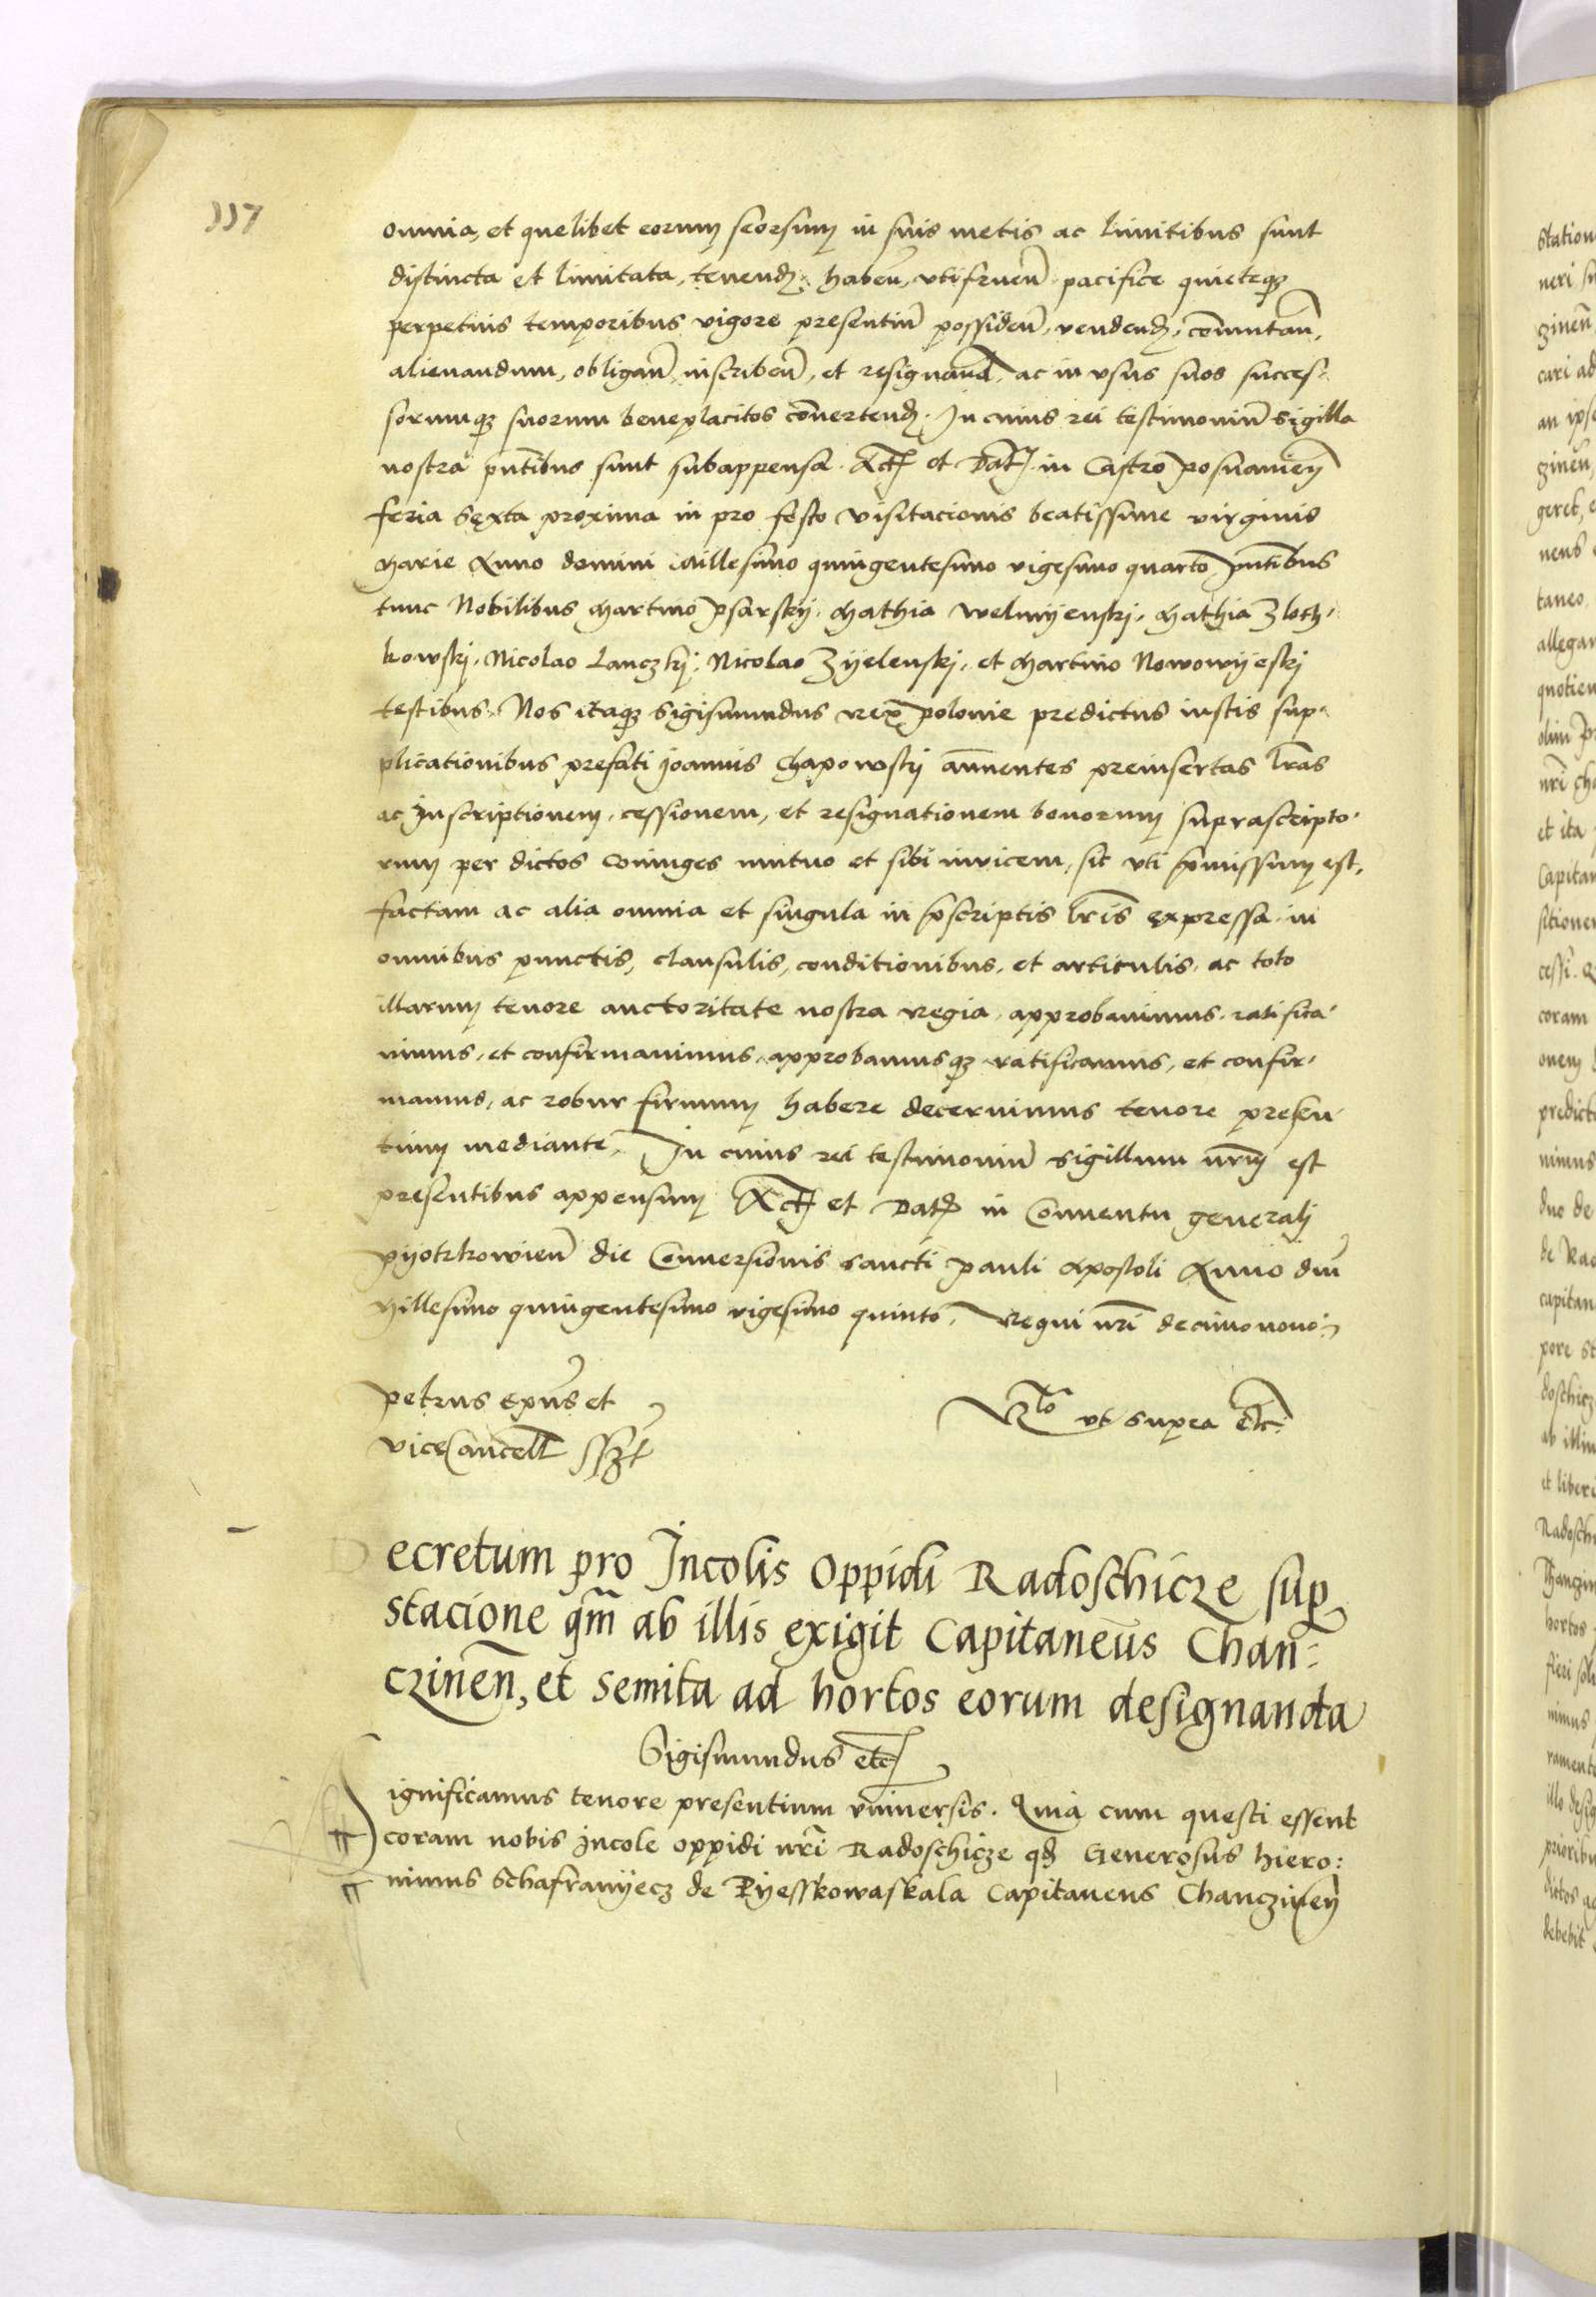 117
omnia, et quelibet eorum seorsum in suis metis ac limitibus sunt
distincta et limitata, tenend, haben, utifruen pacifice quieteq
perpetuis temporibus vigore presentiu possiden, vendend, comutan,
alienandum, obligan inscriben, et resignand, ac in usus suos succes-
sorumq suorum beneplacitos convertend. In cuius rei testimoniu sigilla
nostra pntibus sunt subappensa. Act et Dat in Castro posnanien
feria sexta proxima in pro festo visitacionis beatissime virginis
Marie Anno domini Millesimo quingentesimo vigesimo quarto pntibus
tunc Nobilibus Martino psarskij, Mathia welnyenskj, Mathia Zloth-
kowskj, Nicolao Lanczkj, Nicolao Zyelenskj, et Martino Nowowyeskj
testibus. Nos itaq Sigismundus rex polonie predictus iustis sup-
plicationibus prefati Joannis Chaposkij annuentes preinsertas lras
ac Inscriptionem, cessionem, et resignationem bonorum suprascripto-
rum per dictos coniuges mutuo et sibi invicem, sic uti pmissum est,
factam ac alia omnia et singula in pscriptis lris expressa in
omnibus punctis, clausulis, conditionibus, et articulis, ac toto
illarum tenore auctoritate nostra regia, approbavimus, ratifica-
vimus, et confirmavimus, approbamusq ratificamus, et confir-
mamus, ac robur firmum habere decernimus tenore presen-
tium mediante. In cuius rei testimoniu sigillum nrm est
presentibus appensum Act et Dat in Conventu generalj
pyotrkowien die Conversionis sancti pauli Apostoli Anno dni
Millesimo quingentesimo vigesimo quinto, Regni nri decimonono
petrus Epus et
viceCancell sszt
Rlo ut supra etc
Decretum pro Incolis Oppidi Radoschicze sup
stacione qm ab illis exigit Capitaneus Chan:
czinen, et semita ad hortos eorum designanda
Sigismundus etc
ignificamus tenore presentium universis. Quia cum questi essent
coram nobis Incole oppidi nri Radoschicze qd Generosus Hiero:
nimus Schafranyecz de Pyesskowaskala Capitaneus Chanczinen